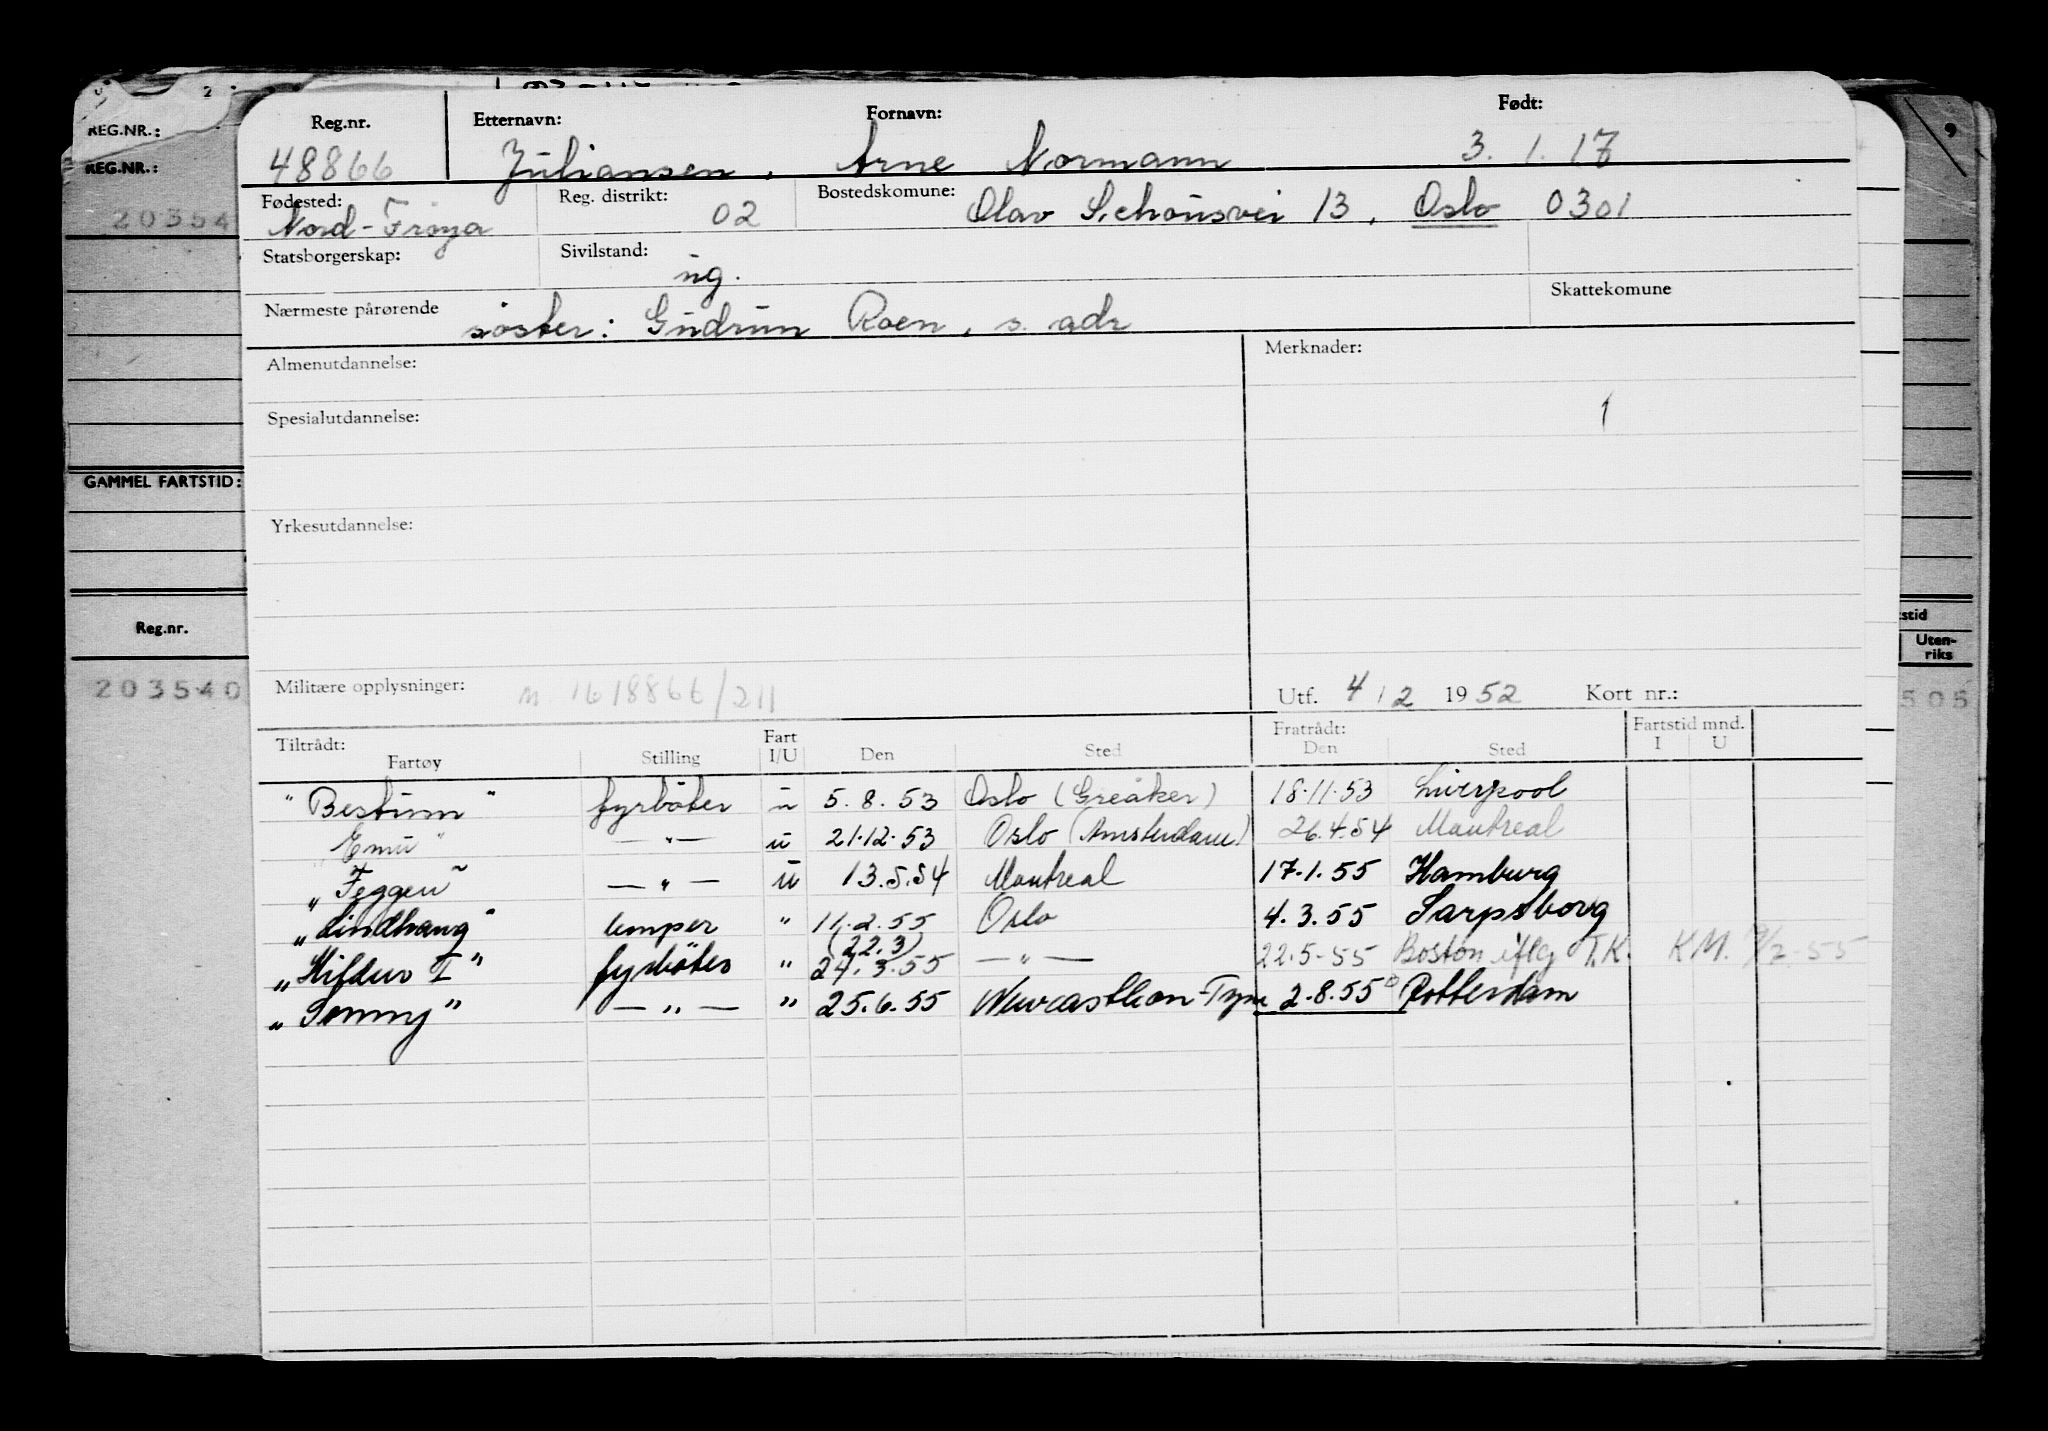 REG.NR.:
REG.NR.:
20354
GAMMEL FARTSTID:
Reg.nr.
203540
Reg.nr. Etternavn: Fornavn: Født:
48866 Juliansen, Arne Normann 3.1.17
Fødested: Reg. distrikt: Bostedskomune:
Nord-Frøya 02 Olav Schousvei 13, Oslo 0301
Statsborgerskap: Sivilstand: ug.
Skattekomune
Nærmeste pårørende søster: Gudrun Roen, s. adr
Almenutdannelse: Merknader:
1
Spesialutdannelse:
Yrkesutdannelse:
Militære opplysninger: m. 1618866/211 Utf. 4/2 1952 Kort nr.:
Tiltrådt: Fart Fratrådt: Fartstid mnd.
Fartøy Stilling I/U Den Sted Den Sted I U
"Bestum" fyrbøter u 5.8.53 Oslo (Greåker) 18.11.53 Liverpool
"Emu" —"— u 21.12.53 Oslo (Amsterdam) 26.4.54 Montreal
"Feggen" —"— u 13.5.54 Montreal 17.1.55 Hamburg
"Lindhaug" lemper " 11.2.55 Oslo 4.3.55 Sarpsborg
(22.3)
"Hildur I" fyrbøter " 24.3.55 —"— 22.5-55 Boston iflg T.K. K.M. 7/7-55
"Sonny" —"— " 25.6.55 Newcastleon-Tyne 2.8.55 Rotterdam
stid
Uten-
riks
505